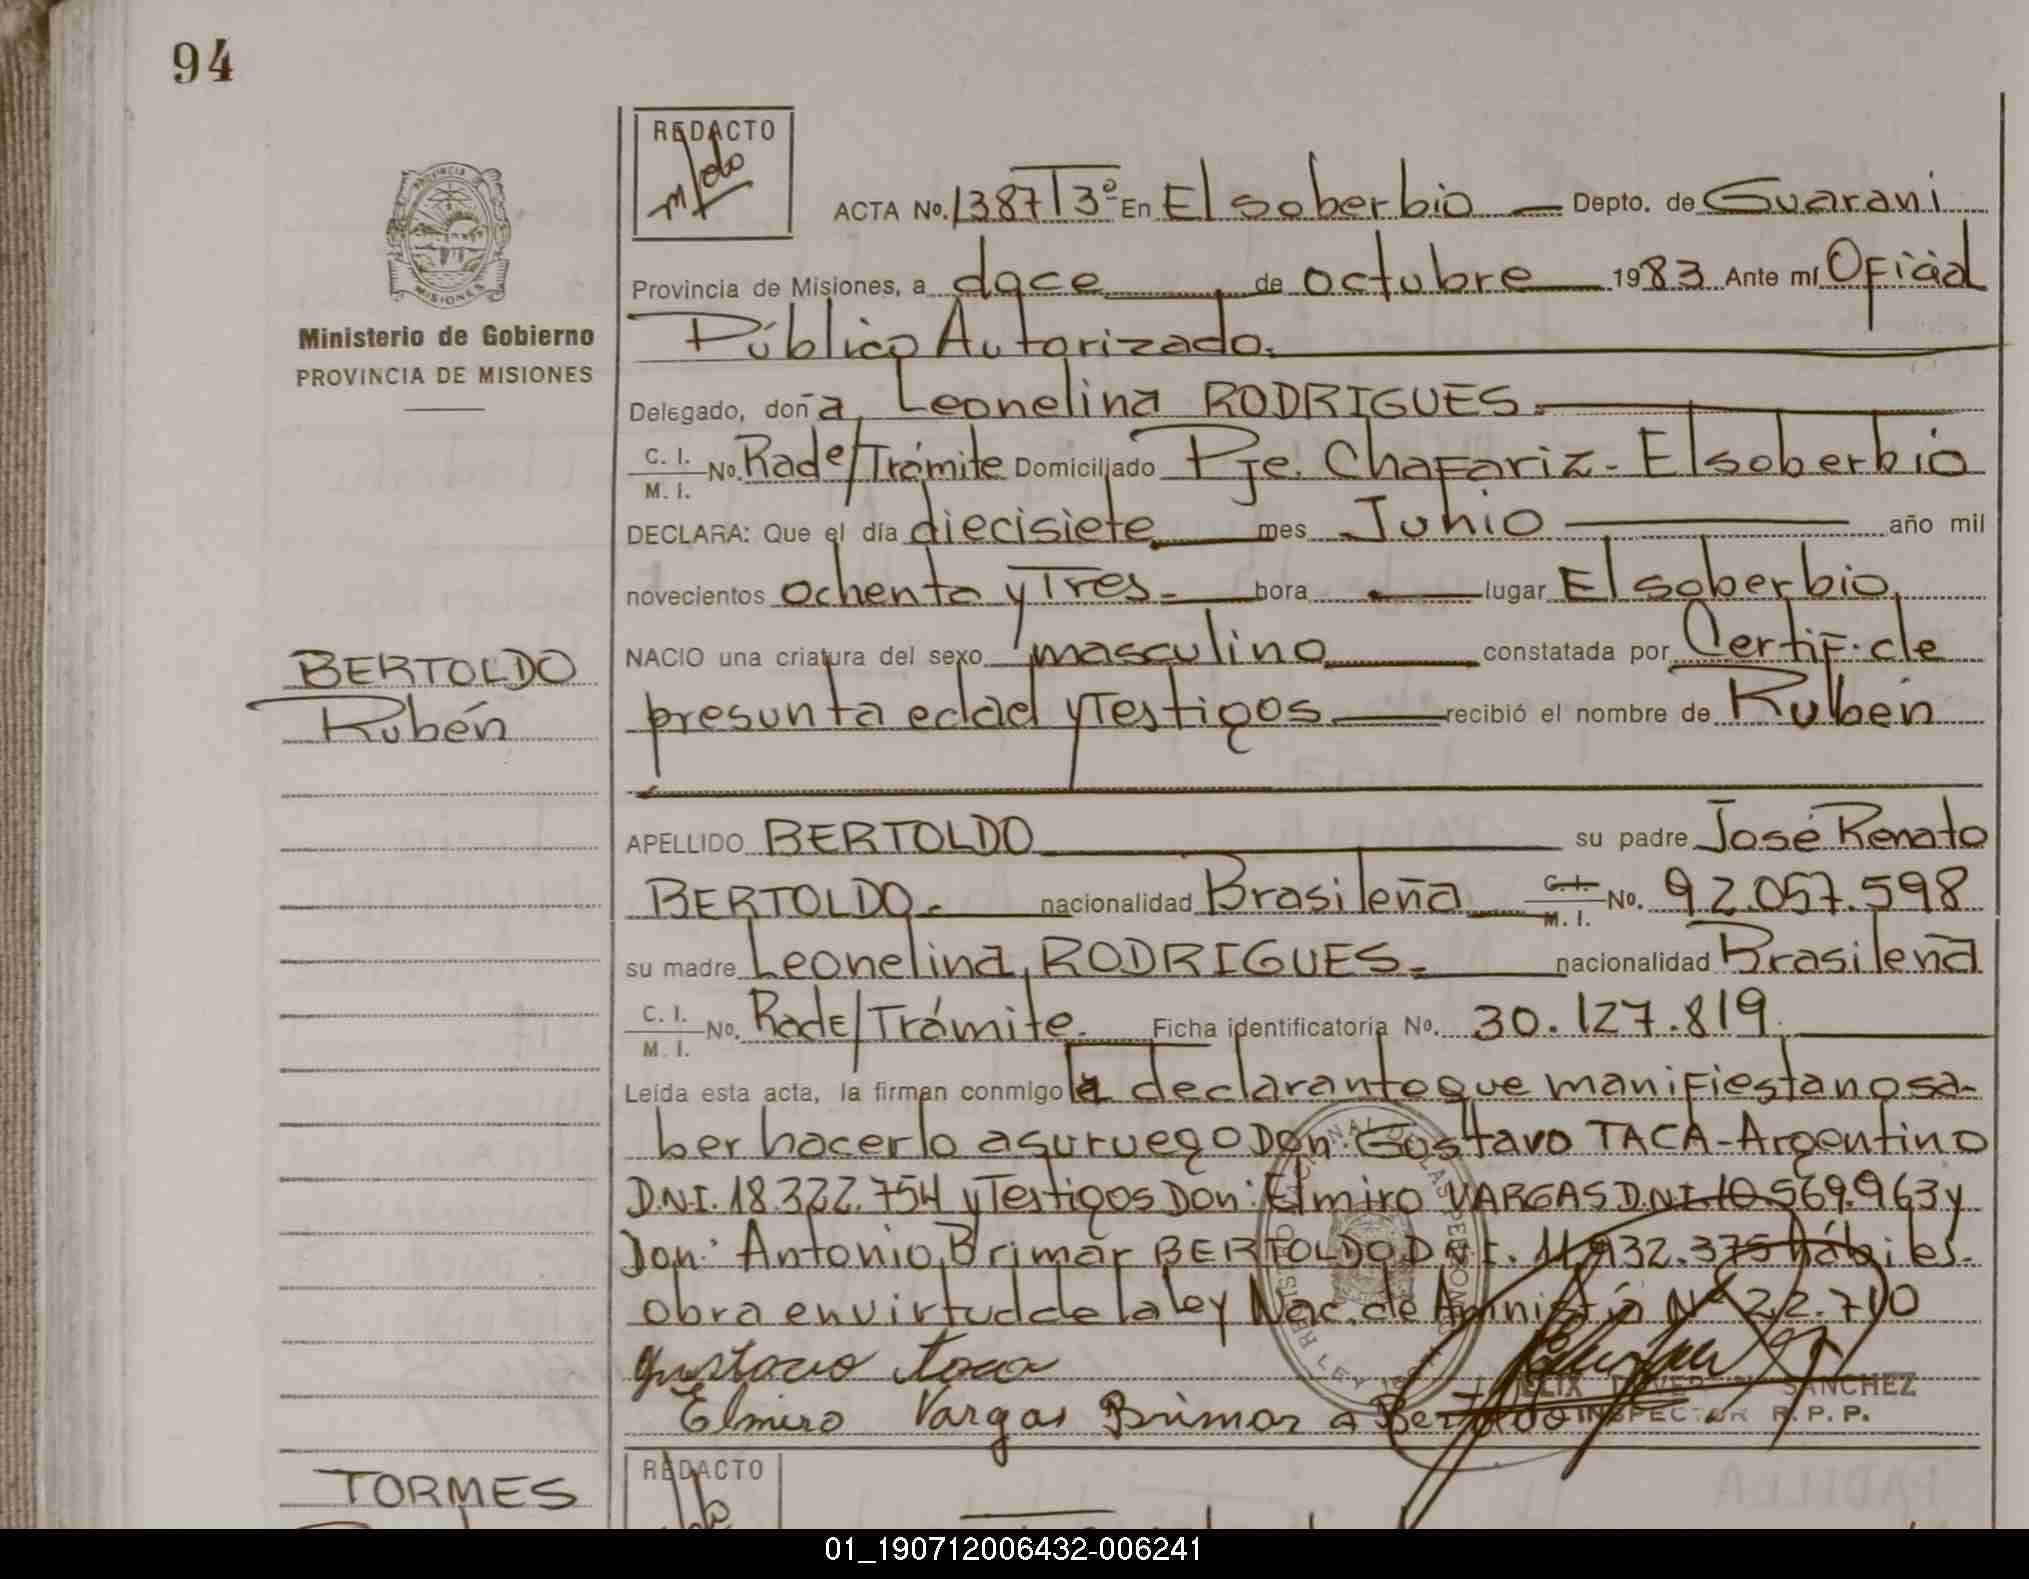 94
REDACTO
PROVINCIA DE
MISIONES
Ministerio de Gobierno
PROVINCIA DE MISIONES
ACTA No. 1387 T 3º En El soberbio Depto. de Guarani
Provincia de Misiones, a doce de octubre 1983 Ante mí Oficial
Público Autorizado.
Delegado, doña Leonelina RODRIGUES.
C. I. / M. I. No. Rade/Trámite Domiciliado Pje. Chafariz - El soberbio
DECLARA: Que el día diecisiete mes Junio año mil
novecientos ochenta y Tres - hora lugar El soberbio
NACIO una criatura del sexo masculino constatada por Certif. de
BERTOLDO
Rubén
presunta edad y Testigos recibió el nombre de Rubén
APELLIDO BERTOLDO su padre José Renato
BERTOLDO. nacionalidad Brasileña C. I. / M. I. No. 92.057.598
su madre Leonelina RODRIGUES. nacionalidad Brasileña
C. I. / M. I. No. Rade/Trámite. Ficha identificatoria No. 30.127.819
Leída esta acta, la firman conmigo la declarante que manifiesta no sa-
ber hacerlo a su ruego Don: Gustavo TACA - Argentino
D.N.I. 18.322.754 y Testigos Don: Elmiro VARGAS D.N.I. 10.569.963 y
Don: Antonio Brimar BERTOLDO D.N.I. 11.932.375 hábiles.
obra en virtud de la ley Nac. de Aminis­tía Nº 22.710
Gustavo Taca
Elmiro Vargas Brimar A Bertoldo
SANCHEZ
INSPECTOR R. P. P.
TORMES
REDACTO
01_190712006432-006241